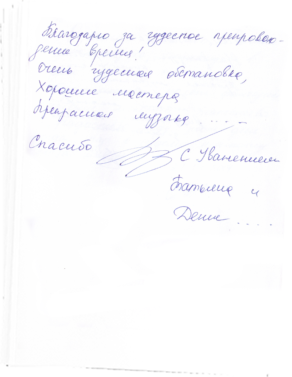 Благодарю за чудесное препровож-
дение время!
Очень чудесная обстановка,
Хорошие мастера
Прекрасная музыка.....
Спасибо
С Уважением
Татьяна и
Денис....